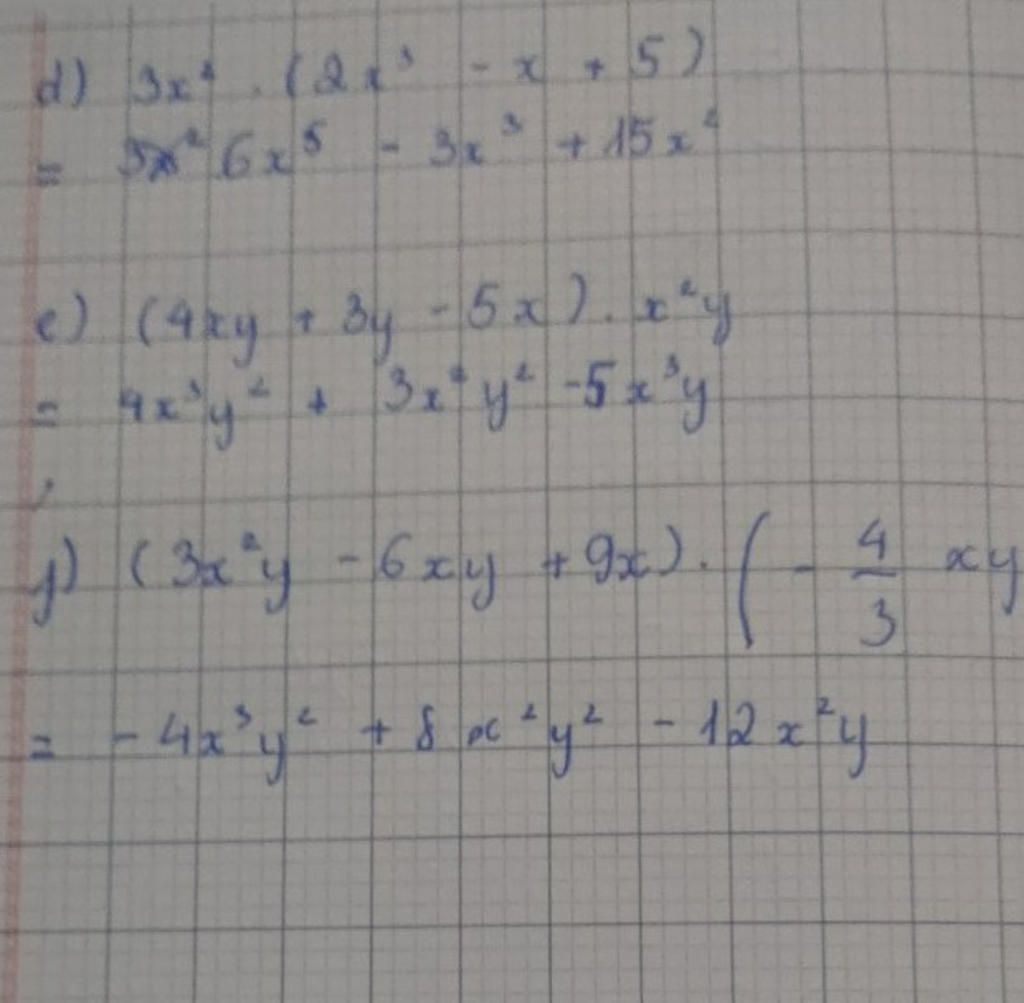 d) 3x² . (2x³ - x + 5)
= 6x⁵ - 3x³ + 15x²
e) (4xy + 3y - 5x) . x²y
= 4x³y² + 3x²y² - 5x³y
f) (3x²y - 6xy + 9x) . ( - 4/3 xy
= - 4x³y² + 8x²y² - 12x²y